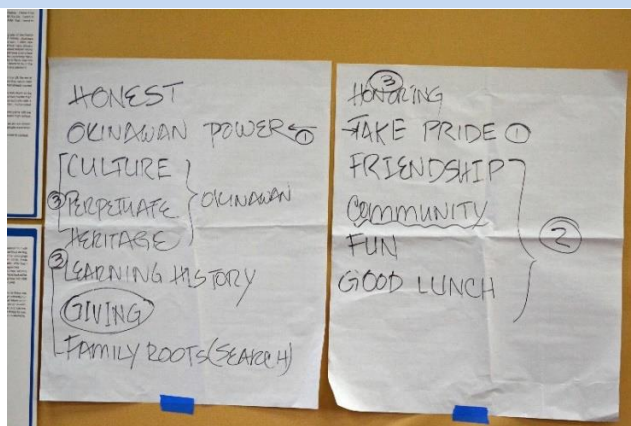 HONEST
OKINAWAN POWER ①
CULTURE
③ PERPETUATE
OKINAWAN
HERITAGE
③ LEARNING HISTORY
GIVING
FAMILY ROOTS (SEARCH)
③
HONORING
TAKE PRIDE ①
FRIENDSHIP
COMMUNITY
②
FUN
GOOD LUNCH